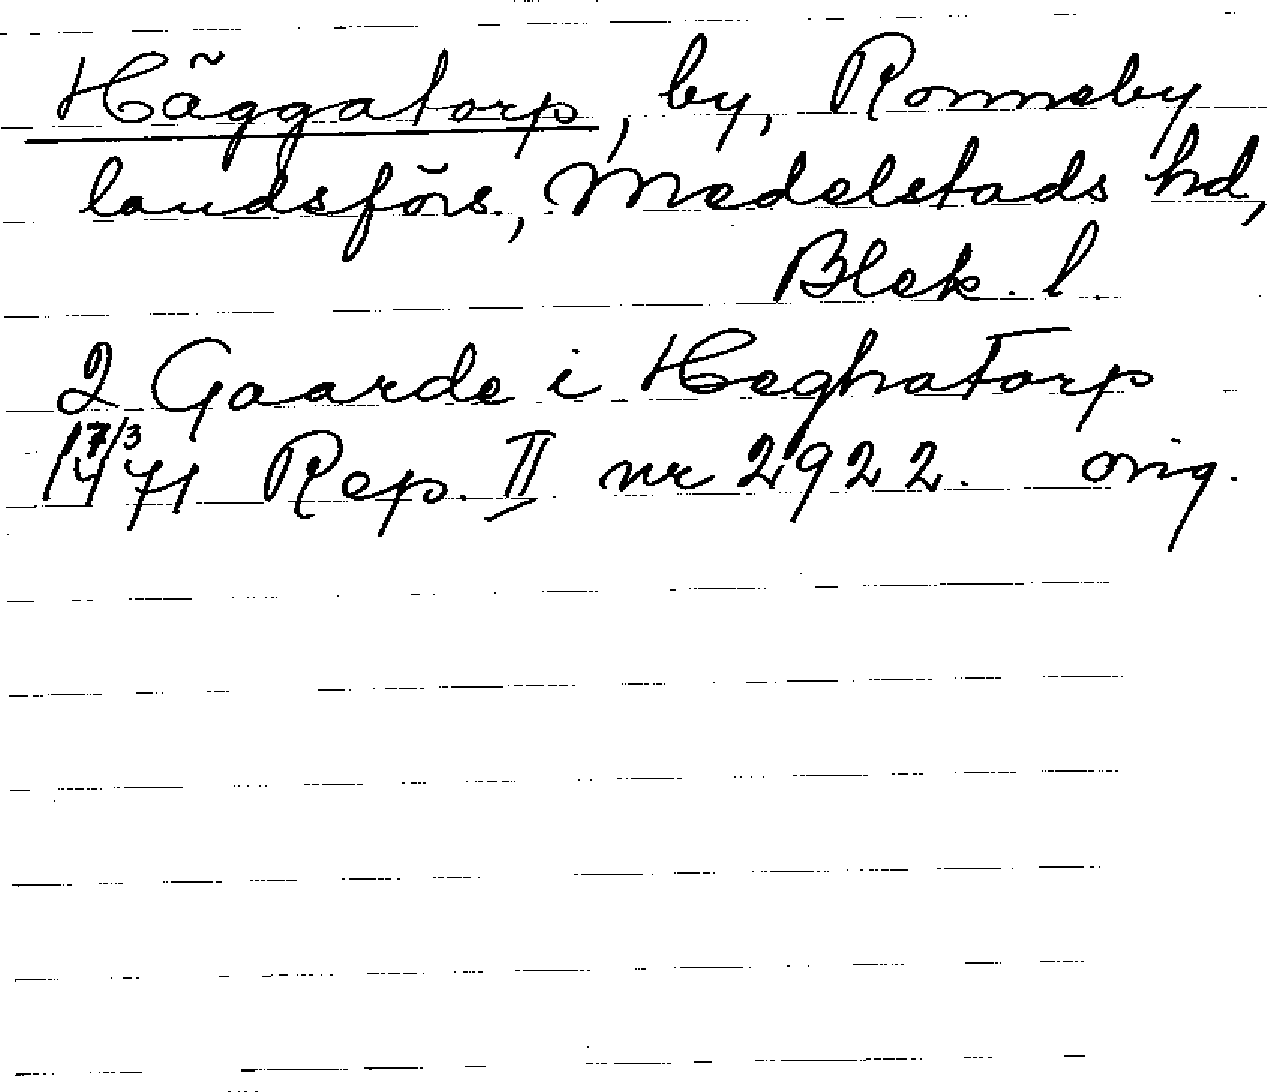 Häggatorp, by, Ronneby
landsförs., Medelstads hd,
Blek. l.
2 Gaarde i Heghatorp
14 17/3 71 Rep. II nr 2922. orig.